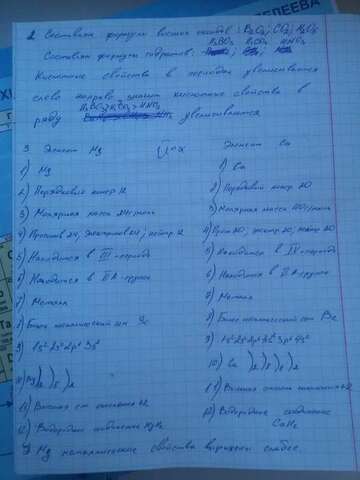 2. Составим формулы высших оксидов: B2O3; CO2; N2O5
H3BO3 H2CO3 HNO3
Составим формулы гидратов:
Кислотные свойства в периодах увеличиваются
слева направо, значит кислотные свойства в
H3BO3 > H2CO3 > HNO3
ряду увеличиваются
3 Элемент Mg
1) Mg
2) Порядковый номер 12
3) Молярная масса 24 г/моль
4) Протонов 24, электронов 24, нейтр 12
5) Находится в III-периоде
6) Находится в IIA-группе
7) Металл
8) Более металлический чем
9) 1s² 2s² 2p⁶ 3s²
10) Mg )2 )8 )2
11) Высшая ст окисления +2
12) Водородное соединение MgH2
Элемент Ca
1) Ca
2) Порядковый номер 20
3) Молярная масса 40 г/моль
4) Прот 20, электр 20, нейтр 20
5) Находится в IV-периоде
6) Находится в IIA-группе
7) Металл
8) Более металлический чем Be
9) 1s² 2s² 2p⁶ 3s² 3p⁶ 4s²
10) Ca )2 )8 )8 )2
11) Высшая степень окисления +2
12) Водородное соединение
CaH2
У Mg металлические свойства выражены слабее.